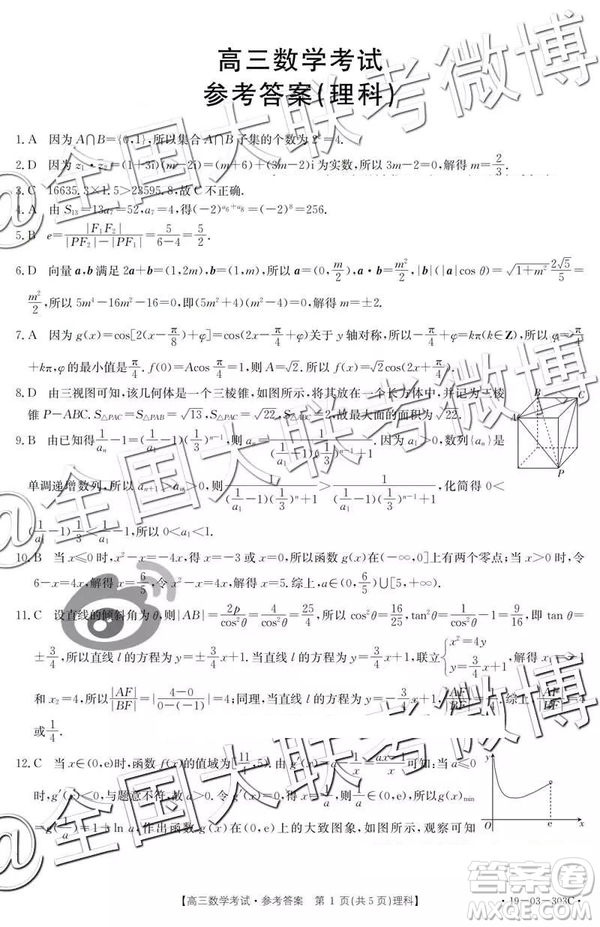 高三数学考试
参考答案(理科)
1.A 因为A∩B={0,1},所以集合A∩B子集的个数为2²=4.
2.D 因为z₁·z₂=(1+3i)(m-2i)=(m+6)+(3m-2)i为实数,所以3m-2=0,解得m=2/3.
3.C 16635.3×1.5>23595.8,故C不正确.
4.A 由S₁₃=13a₇=52,a₇=4,得(-2)^(a₆+a₈)=(-2)⁸=256.
5.B e=|F₁F₂|/(|PF₂|-|PF₁|)=5/(6-4)=5/2.
6.D 向量a,b满足2a+b=(1,2m),b=(1,m),所以a=(0,m/2),a·b=m²/2,|b|(|a|cos θ)=√(1+m²)·2√5/5=
m²/2,所以5m⁴-16m²-16=0,即(5m²+4)(m²-4)=0,解得m=±2.
7.A 因为g(x)=cos[2(x-π/8)+φ]=cos(2x-π/4+φ)关于y轴对称,所以-π/4+φ=kπ(k∈Z),所以φ=kπ
+π/4,φ的最小值是π/4.f(0)=Acos π/4=1,则A=√2.所以f(x)=√2cos(2x+π/4).
8.D 由三视图可知,该几何体是一个三棱锥,如图所示,将其放在一个长方体中,并记为三棱
锥P-ABC.S△PAC=S△PAB=√13,S△PBC=√22,S△ABC=2,故最大面的面积为√22.
9.B 由已知得1/aₙ-1=(1/a₁-1)(1/3)ⁿ⁻¹,则aₙ=1/((1/a₁-1)(1/3)ⁿ⁻¹+1).因为a₁>0,数列{aₙ}是
单调递增数列,所以aₙ₊₁>aₙ>0,则1/((1/a₁-1)(1/3)ⁿ+1)>1/((1/a₁-1)(1/3)ⁿ⁻¹+1),化简得0<
(1/a₁-1)1/3<1/a₁-1,所以0<a₁<1.
10.B 当x≤0时,x²-x=-4x,得x=-3或x=0,所以函数g(x)在(-∞,0]上有两个零点;当x>0时,令
6-x=4x,解得x=6/5,令x-6/5=4x,解得x=5.综上,a∈(0,6/5)∪[5,+∞).
11.C 设直线的倾斜角为θ,则|AB|=2p/cos²θ=4/cos²θ=25/4,所以cos²θ=16/25,tan²θ=1/cos²θ-1=9/16,即tan θ
=±3/4,所以直线l的方程为y=±3/4x+1.当直线l的方程为y=3/4x+1时,联立{x²=4y,y=3/4x+1,解得x₁=-1
和x₂=4,所以|AF|/|BF|=|4-0|/|0-(-1)|=4;同理,当直线l的方程为y=-3/4x+1时,|AF|/|BF|=1/4.综上,|AF|/|BF|=4
或1/4.
12.C 当x∈(0,e)时,函数f(x)的值域为[11/4,5).由g'(x)=a-1/x=(ax-1)/x可知:当a≤0
时,g'(x)<0,与题意不符,故a>0.令g'(x)=0,得x=1/a,则1/a∈(0,e),所以g(x)min
=g(1/a)=1+ln a,作出函数g(x)在(0,e)上的大致图象,如图所示,观察可知
y
O
e
x
P
【高三数学考试·参考答案 第1页(共5页)理科】
·19-03-303C·
@全国大联考微博
@全国大联考微博
@全国大联考微博
答案圈